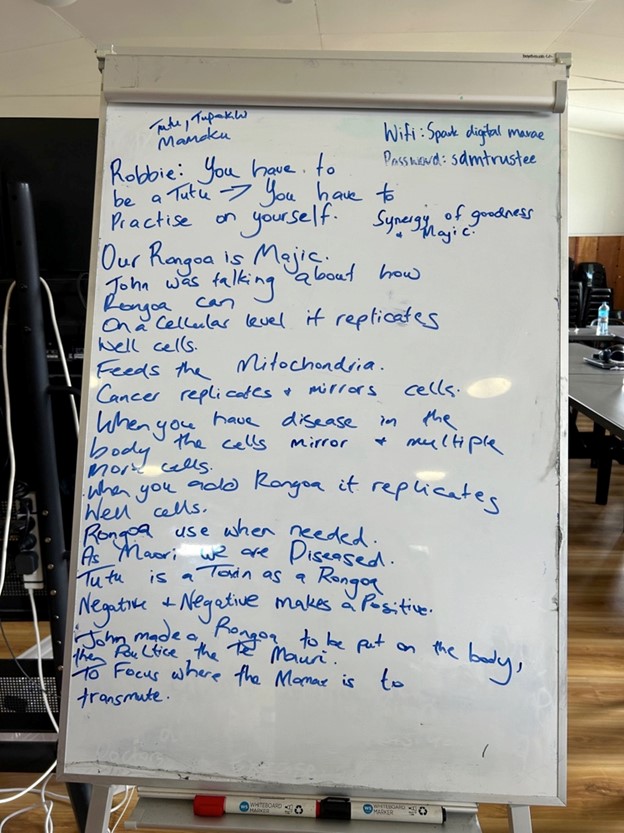 Tutu, Tupakihi
Mamaku
Wifi: Spark digital marae
Password: sdmtrustee
Robbie: You have to
be a Tutu → You have to
Practise on yourself.
Synergy of goodness
+ Majic.
Our Rongoa is Majic.
John was talking about how
Rongoa can
On a Cellular level it replicates
Well cells.
Feeds the Mitochondria.
Cancer replicates + mirrors cells.
When you have disease in the
body the cells mirror + multiple
more cells.
When you add Rongoa it replicates
Well cells.
Rongoa use when needed.
As Maori we are Diseased.
Tutu is a Toxin as a Rongoa
Negative + Negative makes a Positive.
John made a Rongoa to be put on the body,
then Poultice the Te Mauri.
To Focus where the Mamae is to
transmute.
WHITEBOARD MARKER
WHITEBOARD MARKER